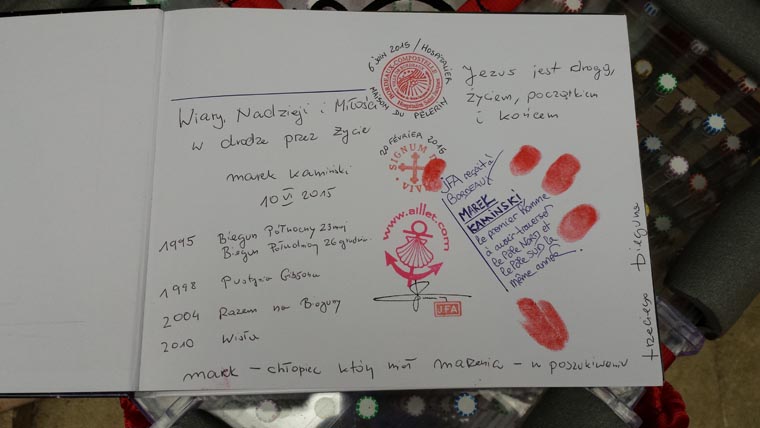 Wiary, Nadzieji i Miłości
w drodze przez życie
marek kamiński
10 VI 2015
1995 Biegun Północny 23 maj
Biegun Południowy 26 grudnia
1998 Pustynia Gibsona
2004 Razem na Bieguny
2010 Wisła
marek – chłopiec który miał marzenia – w poszukiwaniu
trzeciego bieguna
6 juin 2015 / HOSPITALIER
MAISON DU PÈLERIN
BORDEAUX COMPOSTELLE
20 FÉVRIER 2015
SIGNUM
VIA
www.aillet.com
JFA
Jezus jest drogą,
życiem, początkiem
i końcem
JFA
BORDEAUX
MAREK
KAMINSKI
le premier homme
à avoir traversé
le pôle Nord et
le pôle SUD la
même année.